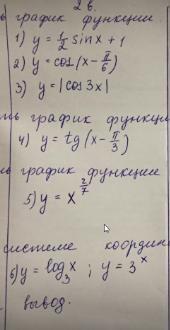 2 в.
график функции
1) y = ½ sin x + 1
2) y = cos (x - π/6)
3) y = |cos 3x|
график функции
4) y = tg (x - π/3)
график функции
5) y = x^(2/7)
системе координ
6) y = log₃ x ; y = 3^x
вывод.